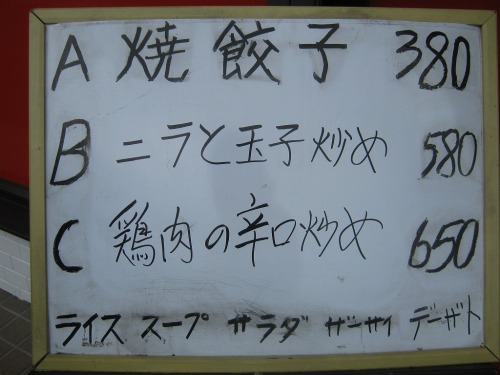 A 焼餃子 380
B ニラと玉子炒め 580
C 鶏肉の辛口炒め 650
ライス スープ サラダ ザーサイ デーザト